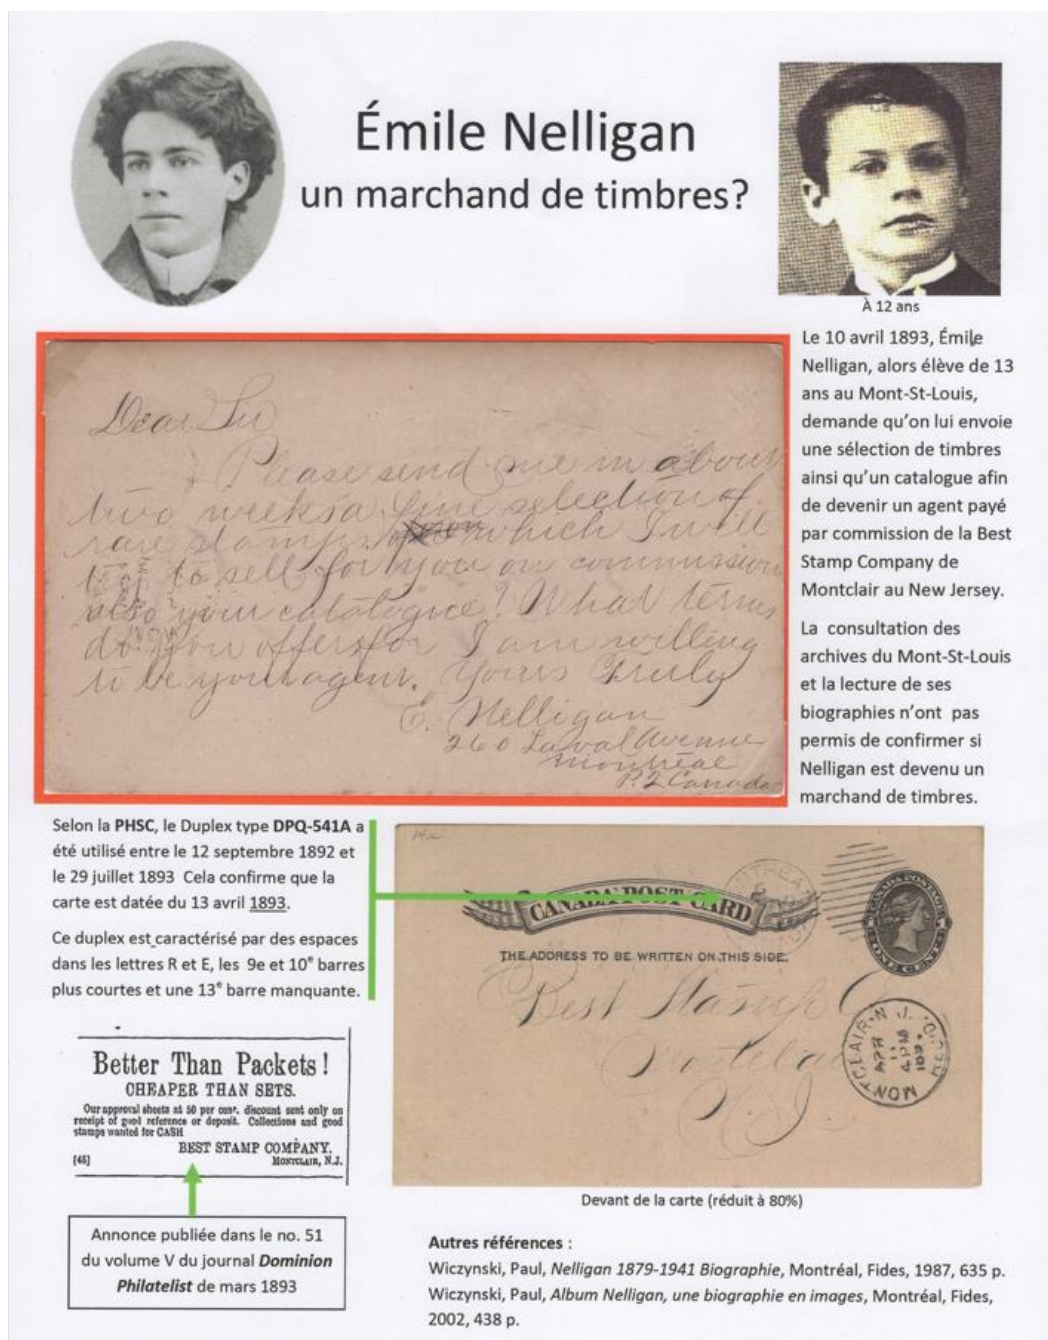 Émile Nelligan
un marchand de timbres?
À 12 ans
Dear Sir
Please send me in about
two weeks a fine selection of
rare stamps which I will
to sell for you on commission
also your catalogue? What terms
do you offer for I am willing
to be your agent. Yours Truly
E. Nelligan
260 Laval Avenue
Montréal
P.Q Canada
Le 10 avril 1893, Émile
Nelligan, alors élève de 13
ans au Mont-St-Louis,
demande qu'on lui envoie
une sélection de timbres
ainsi qu'un catalogue afin
de devenir un agent payé
par commission de la Best
Stamp Company de
Montclair au New Jersey.
La consultation des
archives du Mont-St-Louis
et la lecture de ses
biographies n'ont pas
permis de confirmer si
Nelligan est devenu un
marchand de timbres.
Selon la PHSC, le Duplex type DPQ-541A a
été utilisé entre le 12 septembre 1892 et
le 29 juillet 1893 Cela confirme que la
carte est datée du 13 avril 1893.
Ce duplex est caractérisé par des espaces
dans les lettres R et E, les 9e et 10e barres
plus courtes et une 13e barre manquante.
CANADA POST CARD
THE ADDRESS TO BE WRITTEN ON THIS SIDE.
CANADA POSTAGE
ONE CENT
Best Stamp Co
Montclair
N.J.
MONTCLAIR N.J.
APR
11
4 PM
Devant de la carte (réduit à 80%)
Better Than Packets!
CHEAPER THAN SETS.
Our approval sheets at 50 per cent. discount sent only on
receipt of good reference or deposit. Collections and good
stamps wanted for CASH
BEST STAMP COMPANY.
[45] MONTCLAIR, N.J.
Annonce publiée dans le no. 51
du volume V du journal Dominion
Philatelist de mars 1893
Autres références :
Wiczynski, Paul, Nelligan 1879-1941 Biographie, Montréal, Fides, 1987, 635 p.
Wiczynski, Paul, Album Nelligan, une biographie en images, Montréal, Fides,
2002, 438 p.